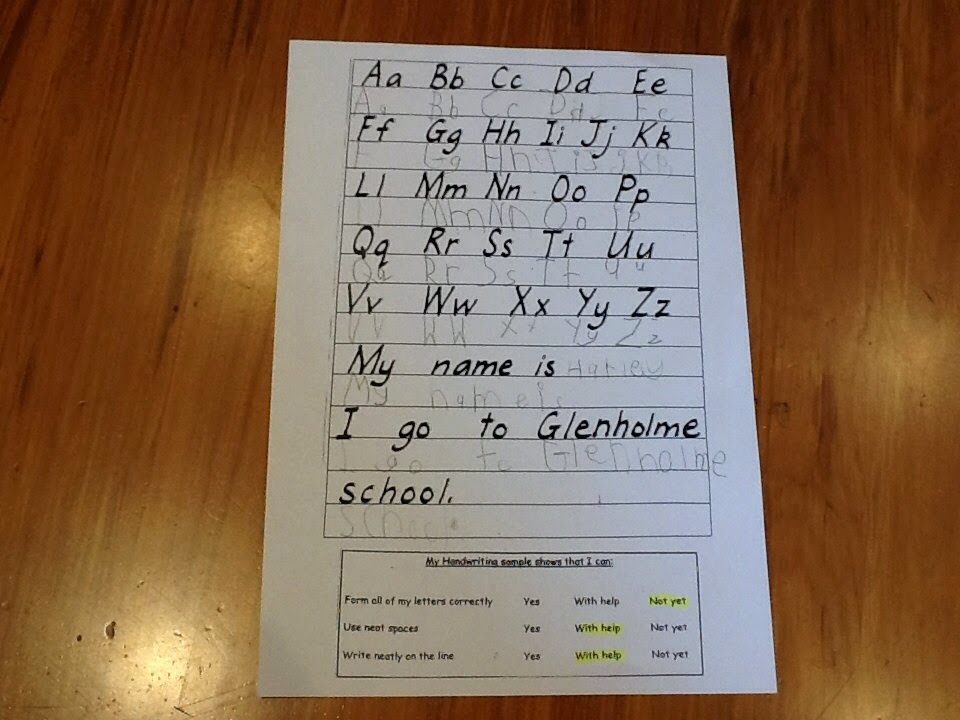 Aa Bb Cc Dd Ee
Aa Bb Cc Dd Ee
Ff Gg Hh Ii Jj Kk
F Gg Hh
Ll Mm Nn Oo Pp
Mm Nn Oo
Qq Rr Ss Tt Uu
Qq Rr Ss Tt
Vv Ww Xx Yy Zz
Vv Ww Xx Yy Zz
My name is Harley
My name is
I go to Glenholme
I go to Glenholme
school.
school
My Handwriting sample shows that I can:
Form all of my letters correctly Yes With help Not yet
Use neat spaces Yes With help Not yet
Write neatly on the line Yes With help Not yet